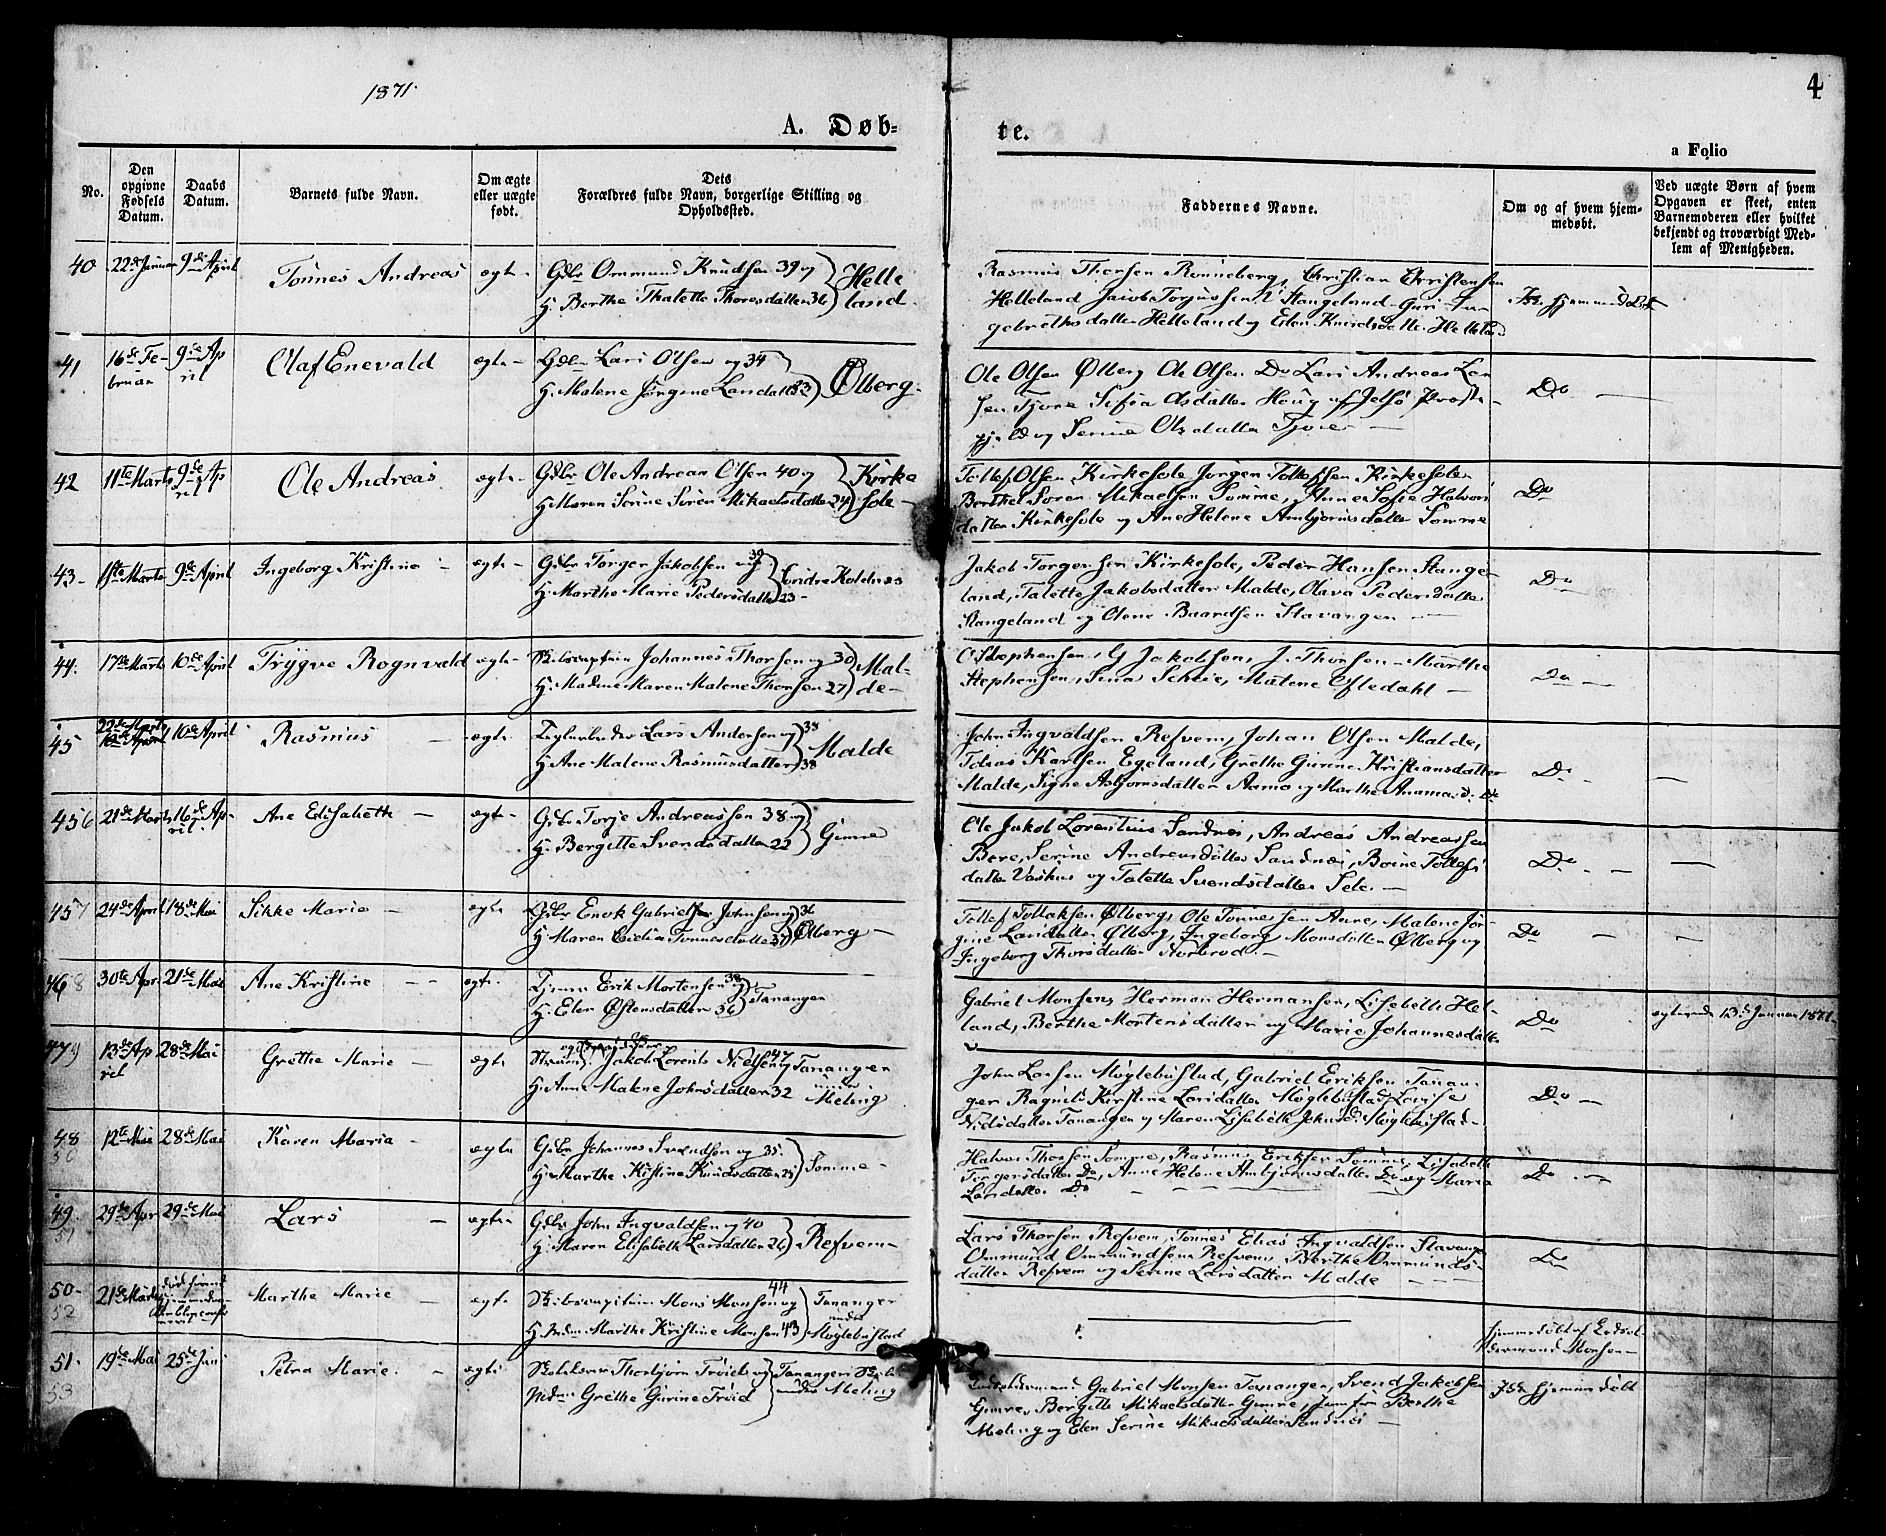 1871.
4
A. Døb-
te.
a Folio
No.
Den opgivne Fødsels Datum.
Daabs Datum.
Barnets fulde Navn.
Om ægte eller uægte født.
Dets Forældres fulde Navn, borgerlige Stilling og Opholdssted.
Faddernes Navne.
Om og af hvem hjemmedøbt.
Ved uægte Børn af hvem Opgaven er skeet, enten Barnemoderen eller hvilket bekjendt og troværdigt Medlem af Menigheden.
40 22de Januar 9de April Tønnes Andreas ægte Gdbr Ommund Knudsen 39 og Helle
H. Berthe Thalette Thoresdatter 36 land.
Rasmus Thorsen Rønneberg, Christian Christensen
Helleland Jacob Torjussen Stangeland Guri In
gebrethsdatter Helleland og Elen Knudsdatter Helleland
Ikke hjemmedøbt
41 16de Fe- 9de Ap
bruar ril Olaf Enevald ægte Gdbr Lars Olsen og 34
H. Malene Jørgine Larsdatter 33 Ølberg.
Ole Olsen Ølberg Ole Olsen Do Lars Andreas Lar
sen Tjora Sofia Olsdatter Houg af Jelsø Præste
gjeld og Serine Olsdatter Tjora
Do
42 11te Marts 9de Ap
ril Ole Andreas ægte Gdbr Ole Andreas Olsen 40 og Kirke
H. Maren Serine Søren Mikaelsdatter 24 sole
Tollef Olsen Kirkesole Jørgen Tollefsen Kirkesole
Berthel Søren Mikaelsen Somme, Anne Sofie Halvors
datter Kirkesole og Ane Helene Ambjørnsdatter Somme
Do
43 1ste Marts 9de April Ingeborg Kristine ægte Gdbr Torger Jakobsen og 39
H. Marthe Marie Pedersdatter 23 Søndre Kolnes
Jakob Torgersen Kirkesole, Peder Hansen Stange-
land, Talette Jakobsdatter Malde, Olava Pedersdatter
Stangeland og Olene Baardsen Stavanger
Do
44. 17de Marts 10de April Trygve Rognvald ægte Skibscaptein Johannes Thorsen og 30 Mal-
H. Madme Maren Malene Thorsen 27 de
O Stephensen, G Jakobsen, J. Thorsen Marthe
Stephensen, Sina Scheie, Malene Ofledahl
Do
45 22de Marts 10de April Rasmus ægte Teglarbeider Lars Andersen og 38
H. Ane Malene Rasmusdatter 38 Malde
John Ingvaldsen Refvem, Johan Olsen Malde,
Tobias Karlsen Egeland, Grethe Gurine Kristiansdatter
Malde, Signe Asbjørnsdatter Aamo og Marthe Aamo Do
Do
456 21de Marts 16de Ap-
ril. Ane Elisabeth ægte Gdbr Torje Andreassen 38 og
H. Bergitte Svendsdatter 22 Gimre
Ole Jakob Lorentius Sandnes, Andreas Andreassen
Bore, Serine Andreasdatter Sandnes, Borne Tollefs
datter Vashus og Talette Svendsdatter Sele.
Do
457 24de April 18de Mai Sikke Marie ægte Gdbr Enok Gabrielsen Johnsen og 36
H. Maren Cecilia Tønnesdatter 37 Ølberg
Tollef Tollaksen Ølberg, Ole Tønnessen Aune, Malene Jør-
gine Larsdatter Ølberg, Ingeborg Monsdatter Ølberg og
Ingeborg Thorsdatter Norbrod.
Do
468 30te Apr 21de Mai Ane Kristine ægte Erik Mortensen og 38
H. Elen Østensdatter 36 Tananger
Gabriel Monsen, Herman Hermansen, Lisebeth Hel-
land, Berthe Mortensdatter og Marie Johannesdatter
Do
ægteviede 13de Januar 1871.
479 13de Ap 28de Mai
ril Grethe Marie ægte Strand Jakob Lorents Nielsen og 47 Tananger
H. Anne Malene Johnsdatter 32 under Meling
John Larsen Møglebustad, Gabriel Eriksen Tanan-
ger Ragnels Kirstine Larsdatter Møglebustad, Louise
Nielsdatter Tananger og Maren Lisebeth Johnsd. Møglebustad
Do
48
50 12te Mai 28de Mai Karen Maria ægte Gdbr Johannes Svendsen og 35.
H. Marthe Kristine Knudsdatter 25 Somme
Halvor Thorsen Somme, Rasmus Eriksen Somme, Lisabeth
Torgersdatter Do, Anne Helene Ambjørnsdatter Do og Maria
Larsdatter Do
Do
49.
51 29de Apr 29de Mai Lars ægte Gdbr John Ingvaldsen og 40
H. Maren Elisabeth Larsdatter 26 Refvem
Lars Thorsen Refvem, Tønnes Elias Ingvaldsen Stavanger
Ommund Ommundsen Refvem, Berthe Ommunds-
datter Refvem og Serine Larsdatter Malde
Do
50.
52 21de Marts Marthe Marie ægte Skibscaptein Mons Monsen og 44 Tananger
H. Mdm Marthe Kristine Monsen 43 under Møglebustad
hjemmedøbt af
Monsen
51.
53 19de Mai 25de Juni Petra Marie. ægte Thorbjørn Trøid og Tananger
Mdm Grethe Gurine Trøid under Meling
Gabriel Monsen Tananger, Svend Jakobsen
Gimre, Bergitte Mikaelsdatter Gimre, Jomfru Berthe
Meling og Elen Serine Mikaelsdatter Sandnes
Ikke hjemmedøbt